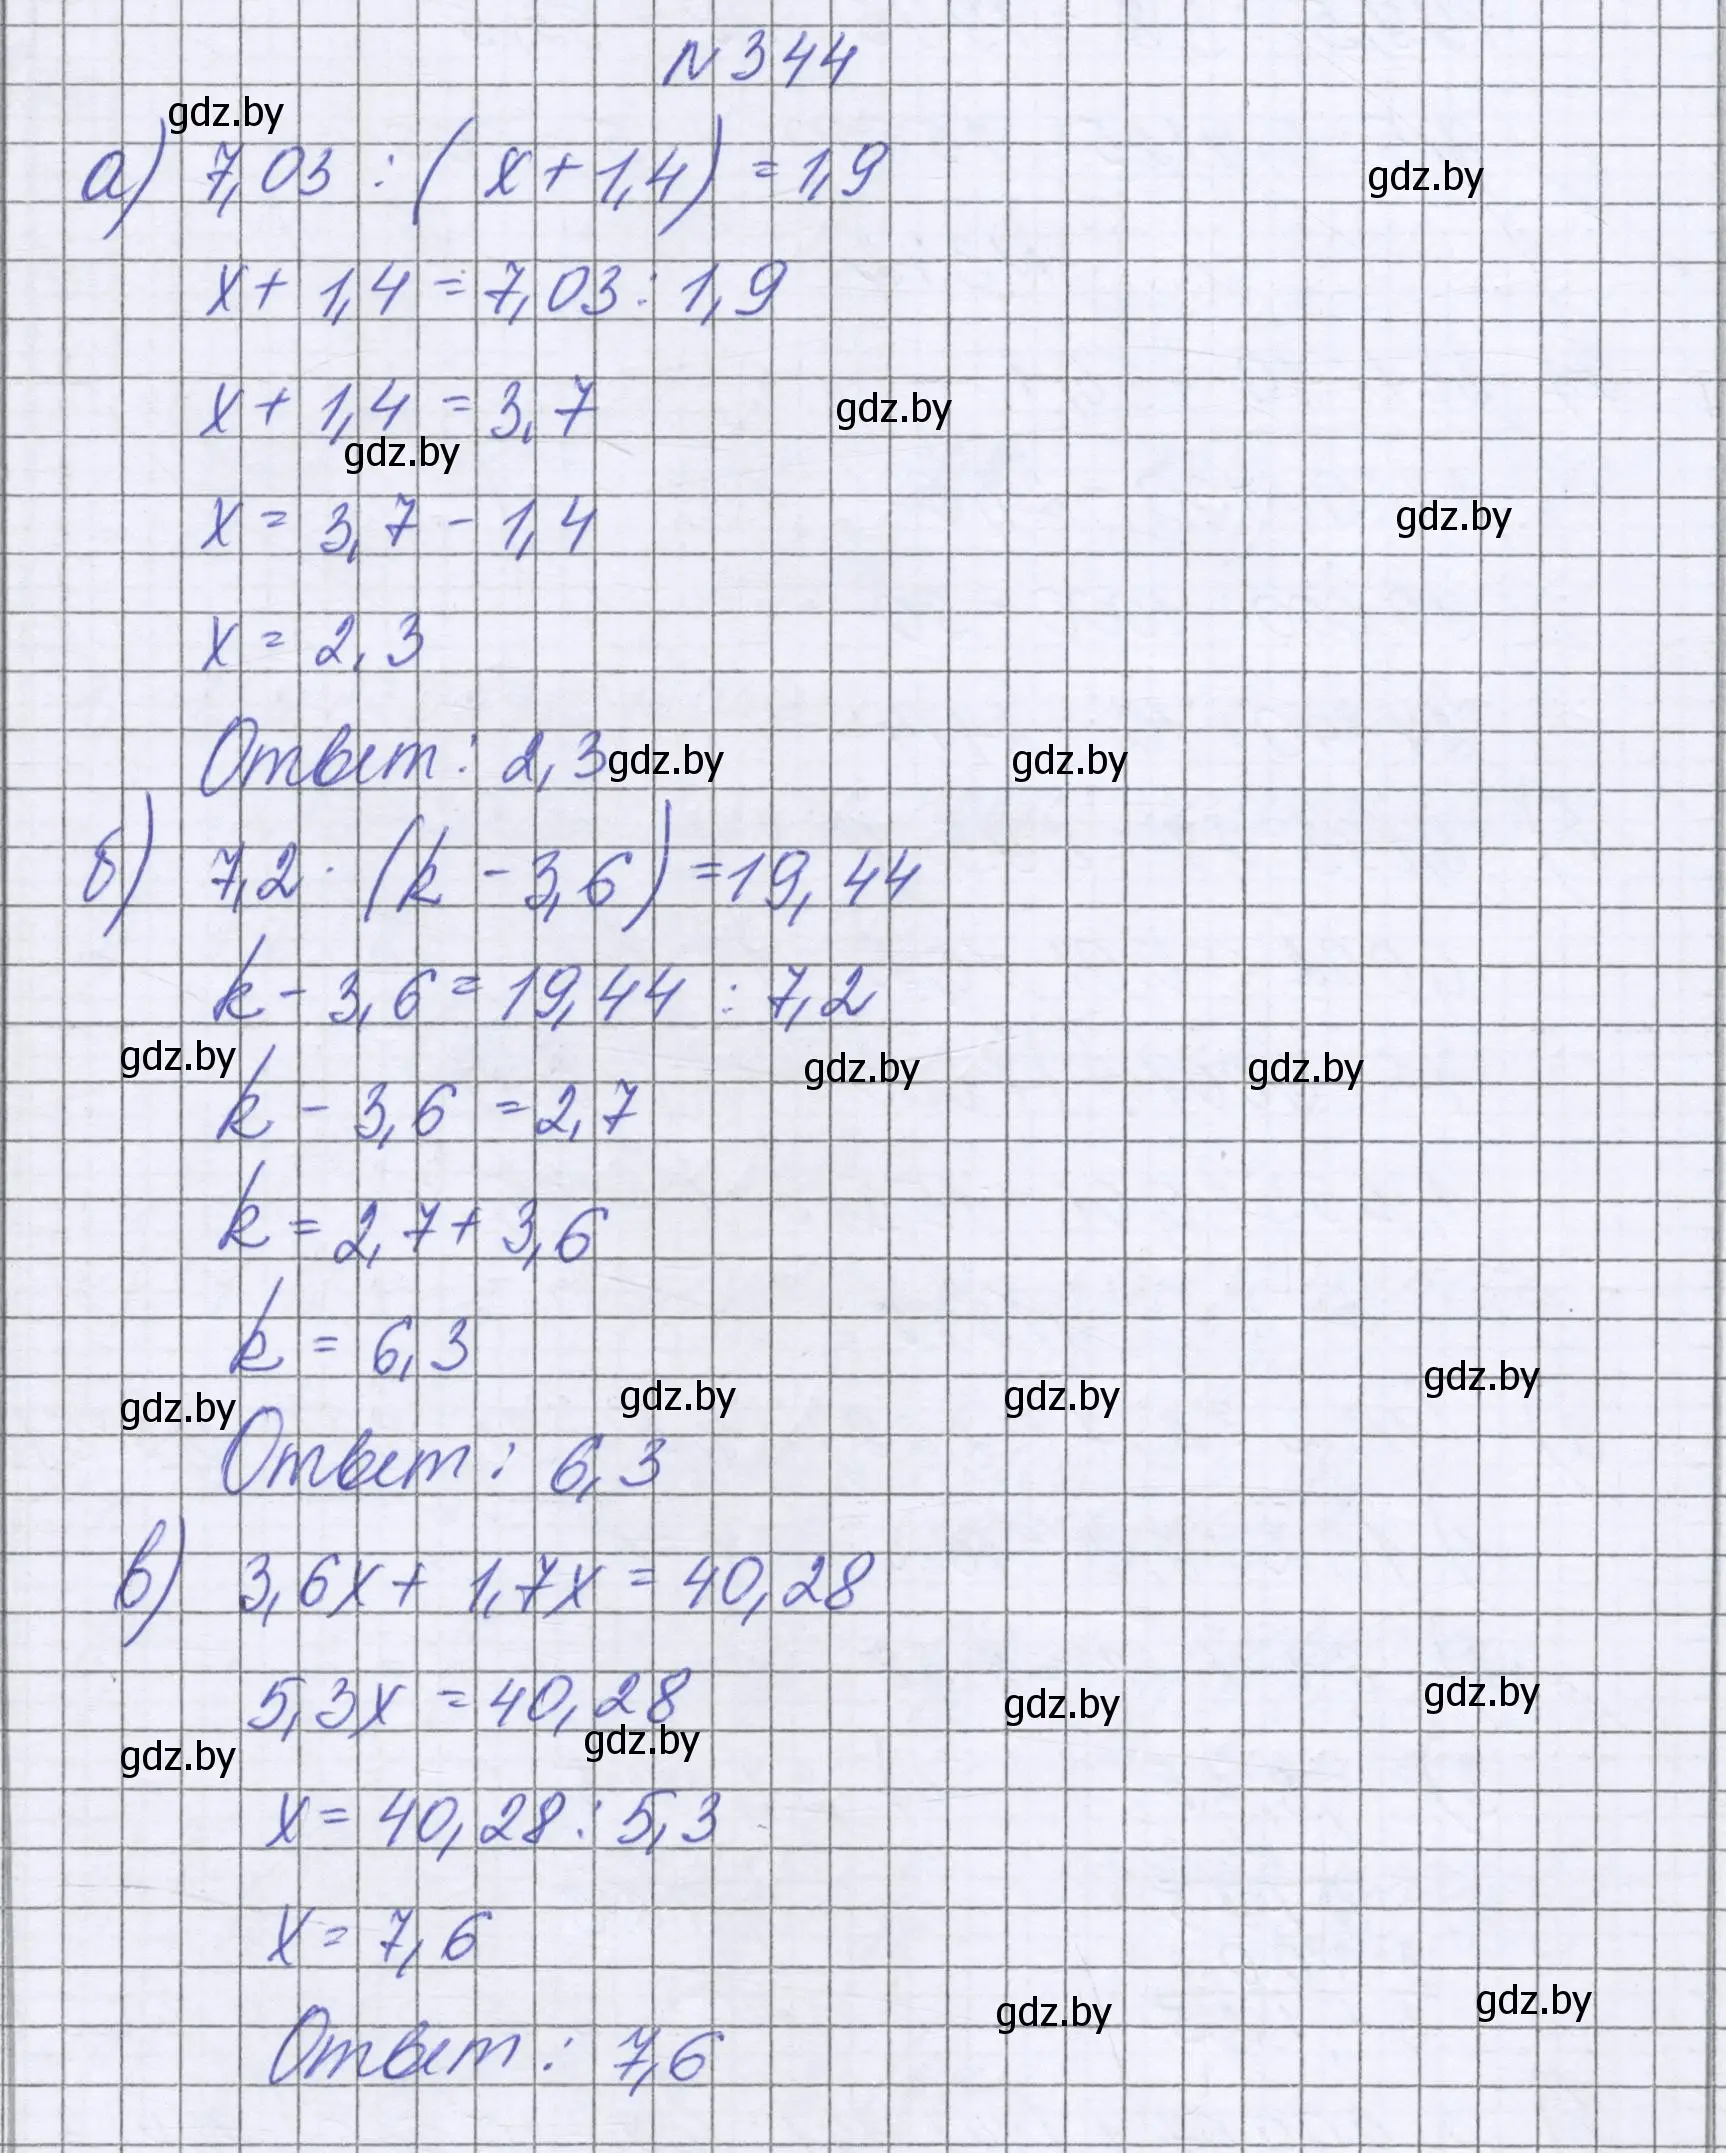 N 344
gdz.by
а) 7,03 : ( x + 1,4) = 1,9
gdz.by
x + 1,4 = 7,03 : 1,9
x + 1,4 = 3,7
gdz.by
gdz.by
x = 3,7 - 1,4
gdz.by
x = 2,3
Ответ: 2,3
gdz.by
gdz.by
б) 7,2 · (k - 3,6) = 19,44
k - 3,6 = 19,44 : 7,2
gdz.by
gdz.by
gdz.by
k - 3,6 = 2,7
k = 2,7 + 3,6
k = 6,3
gdz.by
gdz.by
gdz.by
gdz.by
Ответ: 6,3
в) 3,6x + 1,7x = 40,28
5,3x = 40,28
gdz.by
gdz.by
gdz.by
gdz.by
x = 40,28 : 5,3
x = 7,6
gdz.by
gdz.by
Ответ: 7,6